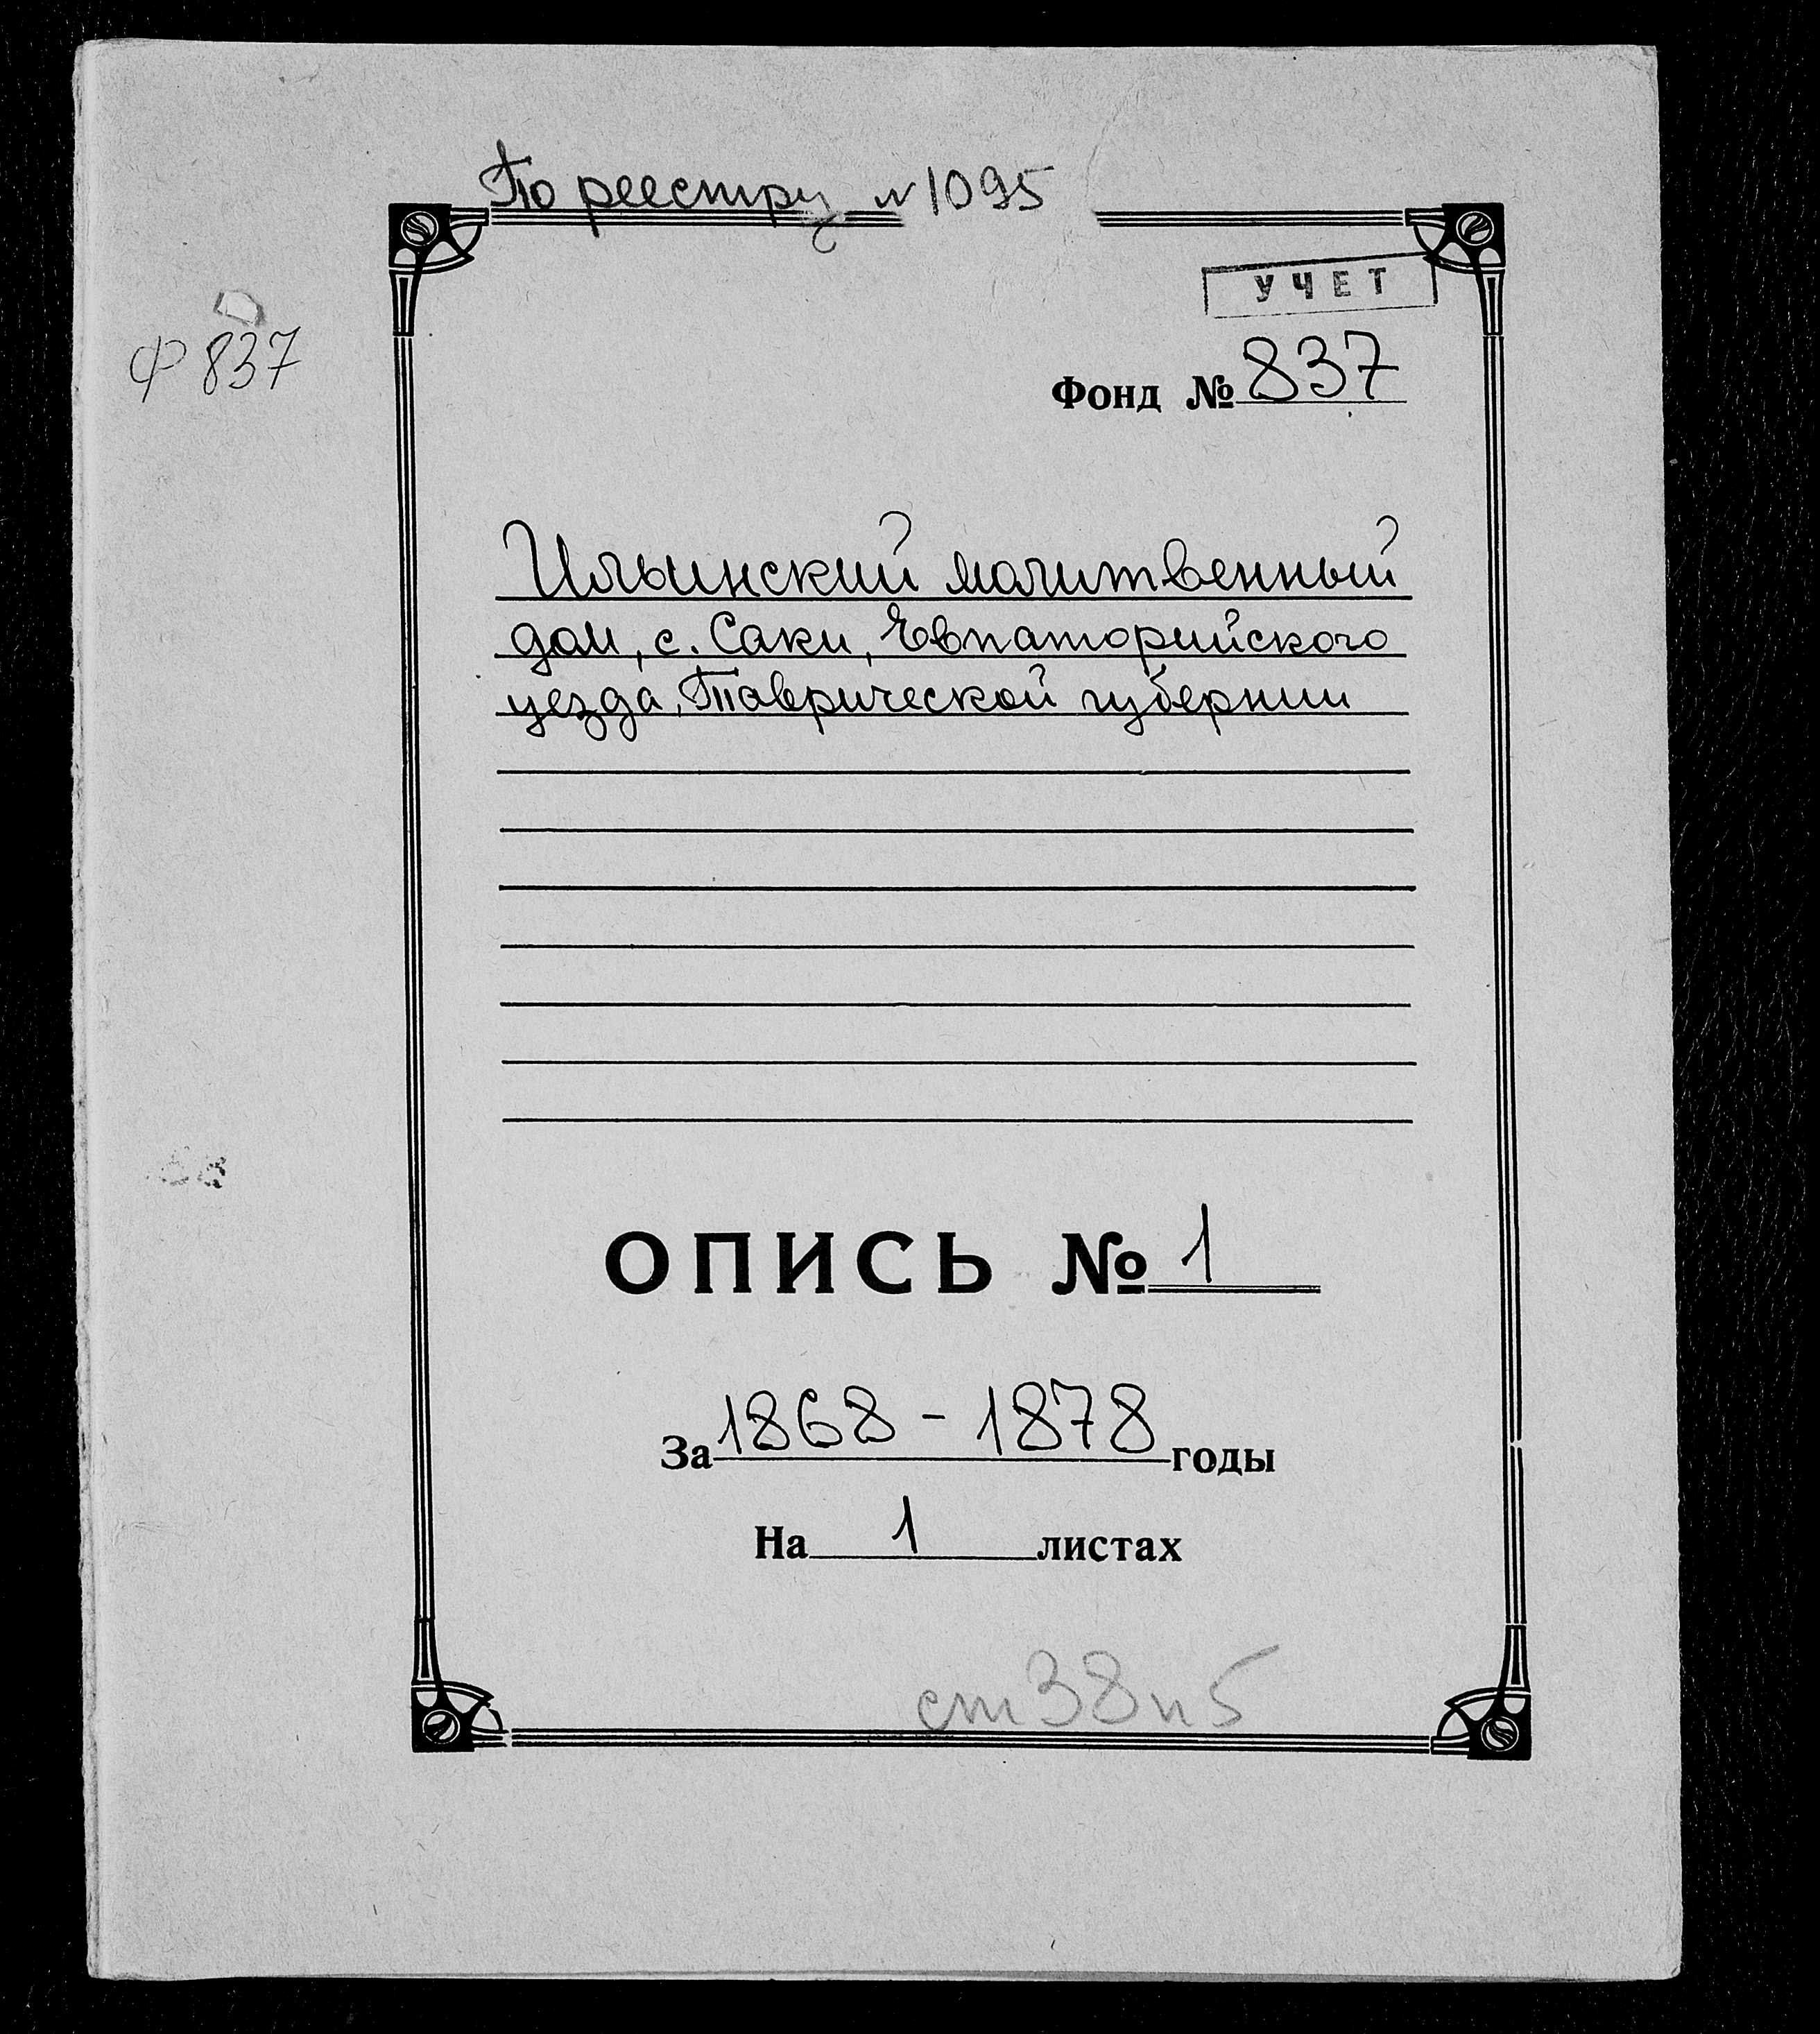 По реестру № 1095
УЧЕТ
Ф 837
Фонд № 837
Ильинский молитвенный
дом, с. Саки, Евпаторийского
уезда, Таврической губернии
ОПИСЬ № 1
За 1868 - 1878 годы
На 1 листах
ст 38 п 5